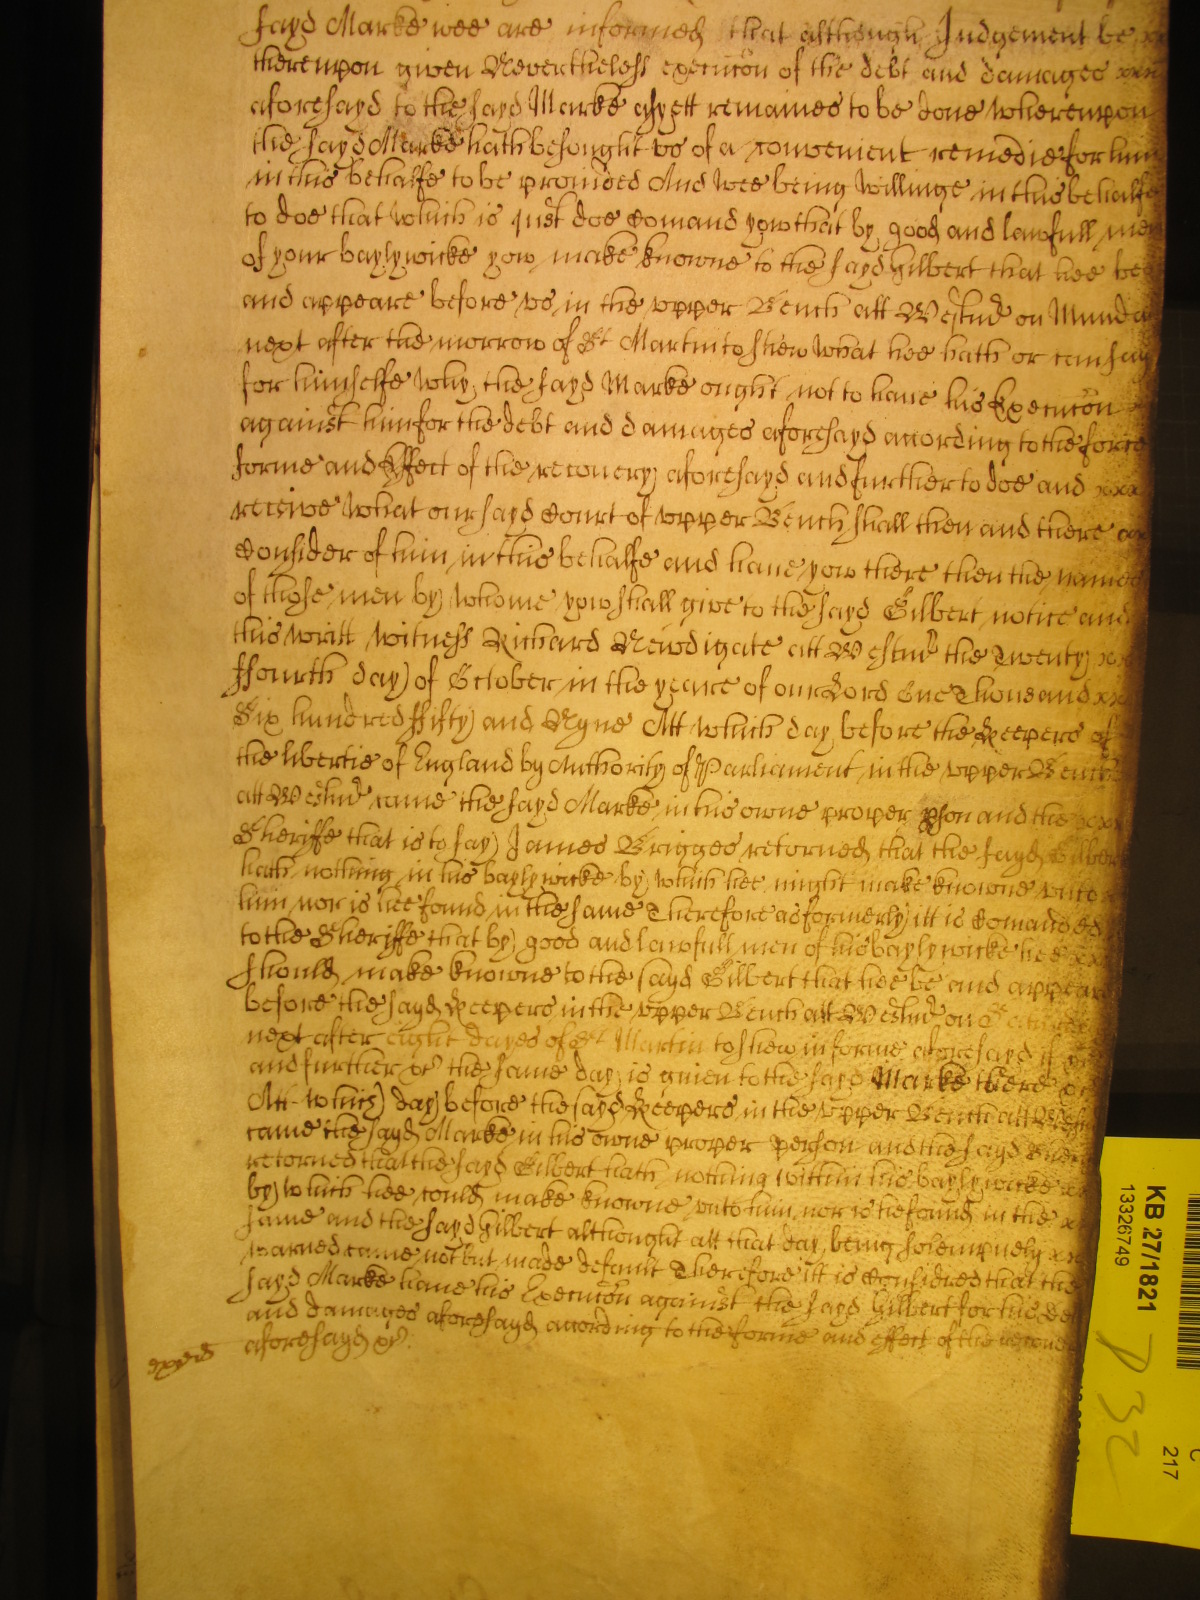 sayd Marke wee are informed that although Judgement be
thereupon given Neverthelesse execucon of the debt and damages xxx
aforesayd to the sayd Marke as yett remaines to be done Whereupon
the sayd Marke hath besought vs of a convenient remedie for him
in this behalfe to be provided And wee being willinge in this behalfe
to doe that which is just doe Comand yow that by good and lawfull men
of your baylywicke yow make knowne to the sayd Gilbert that hee bee
and appeare before vs in the vpper Bench att Westmr on Munday
next after the morrow of St Martin to shew what hee hath or can say
for himselfe why the sayd Marke ought not to have his Execucon
against him for the debt and damages aforesayd according to the force
forme and Effect of the recovery aforesayd and further to doe and xxx
receive what our sayd Court of vpper Bench shall then and there xx
Consider of him in this behalfe and have yow there then the names
of those men by whome yow shall give to the sayd Gilbert notice and
this writt witness Richard Newdigate att Westmr the Twenty xx
ffourth day of October in the yeare of our Lord One Thousand xx
Six hundred ffifty and Nyne Att which day before the Keepers of
the libertie of England by Authority of Parliament in the vpper Bench
att Westmr came the sayd Marke in his owne proper pson and the xxx
Sheriffe that is to say James Brigges retorned that the sayd Gilbert
hath nothing in his baylywicke by which hee might make knowne vnto
him nor is hee found in the same Therefore as formerly itt is Comanded
to the Sheriffe that by good and lawfull men of his baylywicke hee xx
should make knowne to the sayd Gilbert that hee be and appeare
before the sayd Keepers in the vpper Bench att Westmr on
next after eight dayes of St Martin to shew in forme aforesayd if
and further xc the same day is given to the sayd Marke there xc
Att which day before the sayd Keepers in the vpper Bench att Westmr
came the sayd Marke in his owne proper person and the sayd
retorned that the sayd Gilbert hath nothing within his baylywicke
by which hee could make knowne vnto him nor is he found in the
same and the sayd Gilbert althought att that day being solempnely
warned came not but made default Therefore itt is Considred that the
sayd Marke have his Execucon against the sayd Gilbert for his
and damages aforesayd according to the forme and effect of the
aforesayd xc.
KB 27/1821
13326749
217
P32